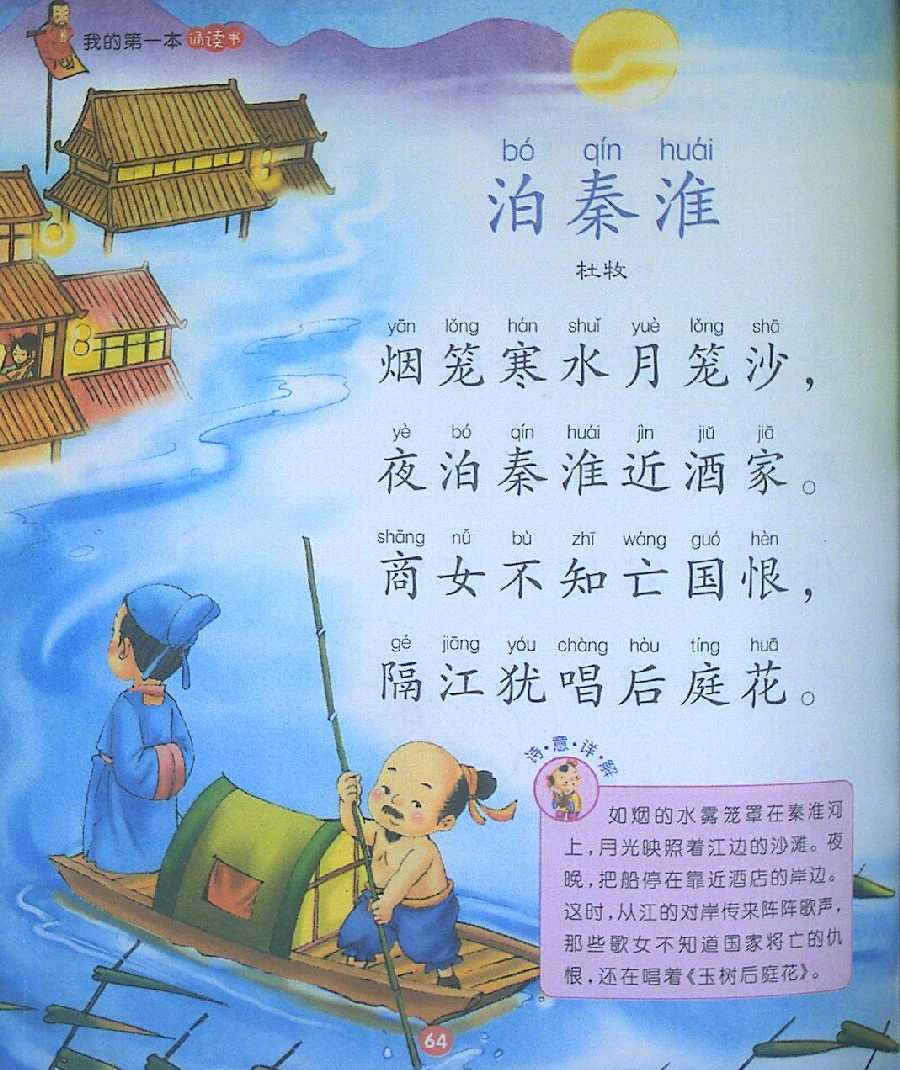 我的第一本诵读书
bó qín huái
泊秦淮
杜牧
yān lǒng hán shuǐ yuè lǒng shā
烟笼寒水月笼沙，
yè bó qín huái jìn jiǔ jiā
夜泊秦淮近酒家。
shāng nǚ bù zhī wáng guó hèn
商女不知亡国恨，
gé jiāng yóu chàng hòu tíng huā
隔江犹唱后庭花。
诗·意·详·解
如烟的水雾笼罩在秦淮河
上，月光映照着江边的沙滩。夜
晚，把船停在靠近酒店的岸边。
这时，从江的对岸传来阵阵歌声，
那些歌女不知道国家将亡的仇
恨，还在唱着《玉树后庭花》。
64